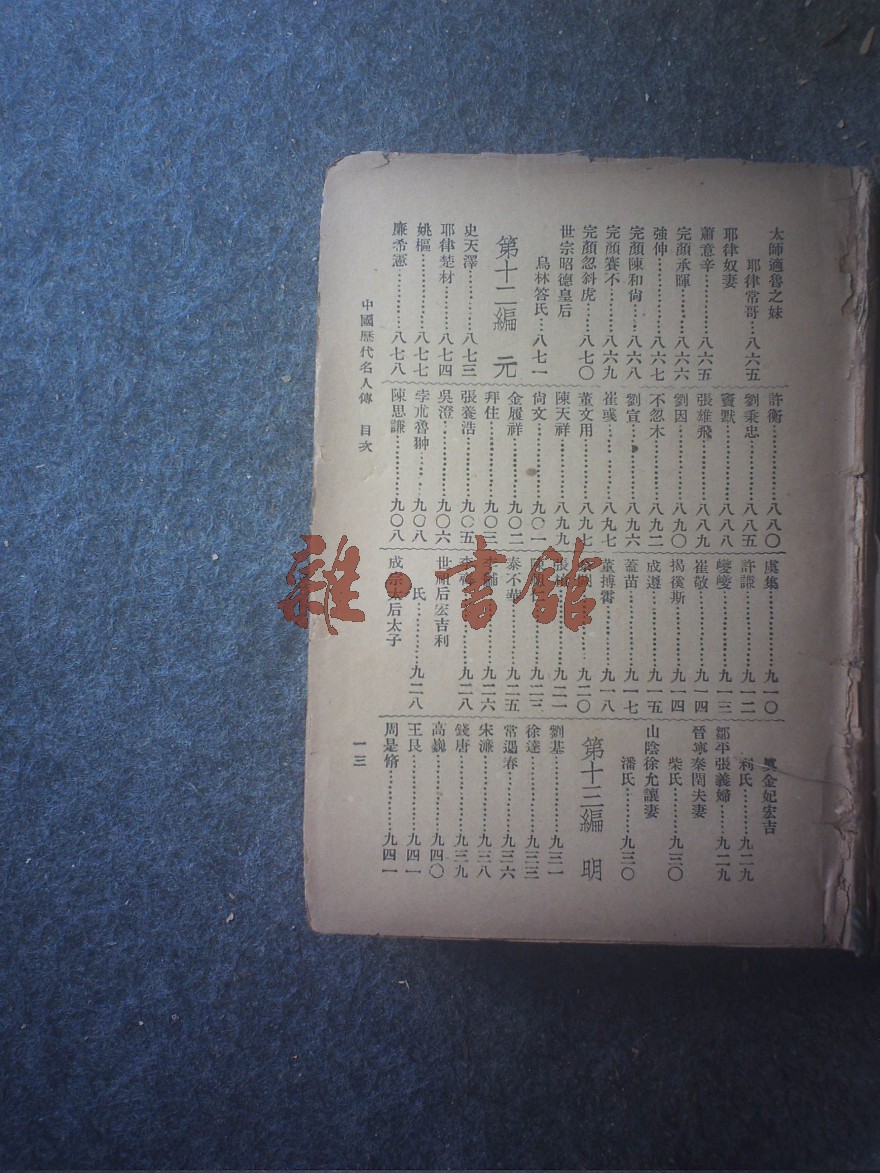 太師適魯之妹
耶律常哥⋯八六五
耶律奴妻
蕭意辛⋯⋯⋯八六五
完顏承暉⋯⋯八六六
強伸⋯⋯⋯⋯八六七
完顏陳和尙⋯八六八
完顏賽不⋯⋯八六九
完顏忽斜虎⋯八七〇
世宗昭德皇后
烏林答氏⋯八七一
第十二編 元
史天澤⋯⋯⋯八七三
耶律楚材⋯⋯八七四
姚樞⋯⋯⋯⋯八七七
廉希憲⋯⋯⋯八七八
許衡⋯⋯⋯⋯八八〇
劉秉忠⋯⋯⋯八八五
竇默⋯⋯⋯⋯八八八
張雄飛⋯⋯⋯八八九
劉因⋯⋯⋯⋯八九〇
不忽木⋯⋯⋯八九二
劉宣⋯⋯⋯⋯八九六
崔彧⋯⋯⋯⋯八九七
董文用⋯⋯⋯八九七
陳天祥⋯⋯⋯八九九
尙文⋯⋯⋯⋯九〇一
金履祥⋯⋯⋯九〇二
拜住⋯⋯⋯⋯九〇三
張養浩⋯⋯⋯九〇五
吳澄⋯⋯⋯⋯九〇六
孛朮魯翀⋯⋯九〇八
陳思謙⋯⋯⋯九〇八
虞集⋯⋯⋯⋯九一〇
許謙⋯⋯⋯⋯九一二
巙巙⋯⋯⋯⋯九一三
崔敬⋯⋯⋯⋯九一四
揭傒斯⋯⋯⋯九一四
成遵⋯⋯⋯⋯九一五
蓋苗⋯⋯⋯⋯九一七
董摶霄⋯⋯⋯九一八
⋯⋯九二〇
張⋯⋯九二一
⋯⋯九二三
泰不華⋯⋯⋯九二五
李黼⋯⋯⋯⋯九二六
李⋯⋯九二八
世祖后宏吉利
氏⋯⋯⋯⋯九二八
成宗太后太子
眞金妃宏吉
利氏⋯⋯⋯九二九
鄒平張義婦⋯九二九
晉寧秦閏夫妻
柴氏⋯⋯⋯九三〇
山陰徐允讓妻
潘氏⋯⋯⋯九三〇
第十三編 明
劉基⋯⋯⋯⋯九三一
徐達⋯⋯⋯⋯九三三
常遇春⋯⋯⋯九三六
宋濂⋯⋯⋯⋯九三八
錢唐⋯⋯⋯⋯九三九
高巍⋯⋯⋯⋯九四〇
王艮⋯⋯⋯⋯九四一
周是脩⋯⋯⋯九四一
中國歷代名人傳 目次
一三
雜·書館